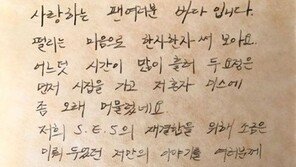 사랑하는 팬여러분 바다 입니다.
떨리는 마음으로 한자한자 써 보아요..
어느덧 시간이 많이 흘러 두 요정은
먼저 시집을 가고 저 혼자 미스에
좀 오래 머물렀네요
저희 S.E.S의 재결합을 위해 조금은
미뤄 두었던 저만의 이야기를 여러분께